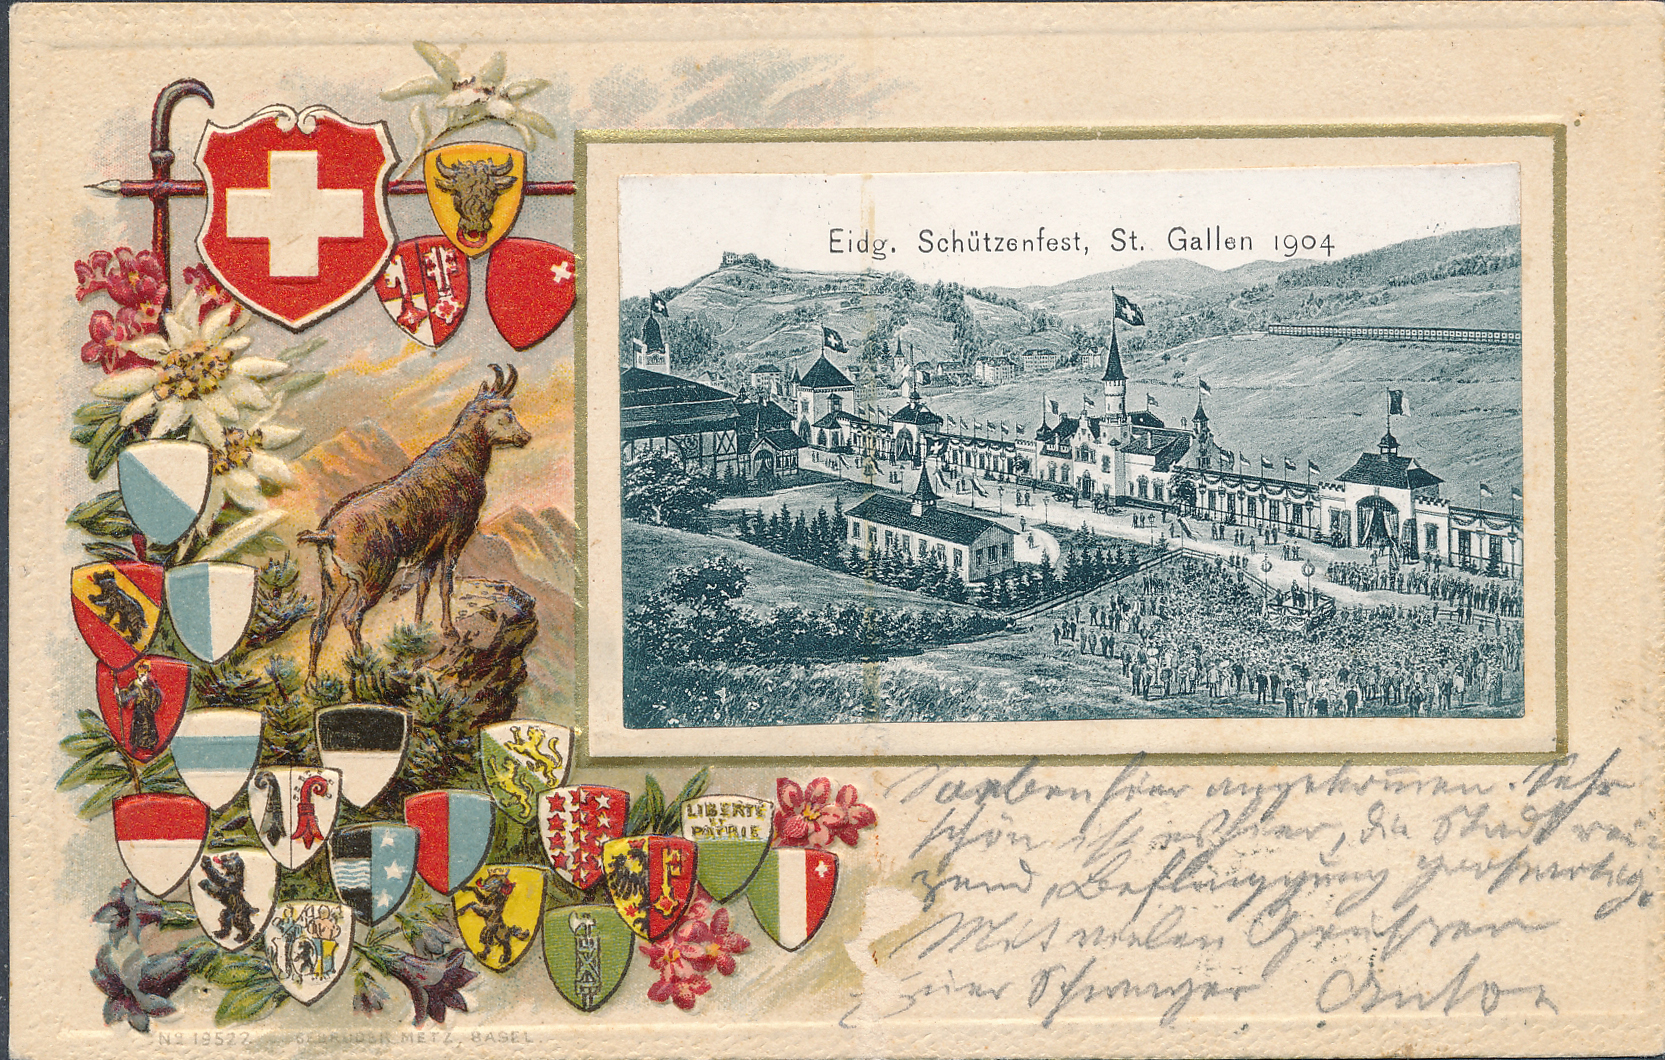 Eidg. Schützenfest, St. Gallen 1904
LIBERTÉ
ET
PATRIE
hier angekommen. Sehr
schön ist es hier, die Stadt rei-
zend, Beflaggung grossartig.
Mit vielen Grüssen
Euer Schwager Anton
No 19522 GEBRÜDER METZ, BASEL.